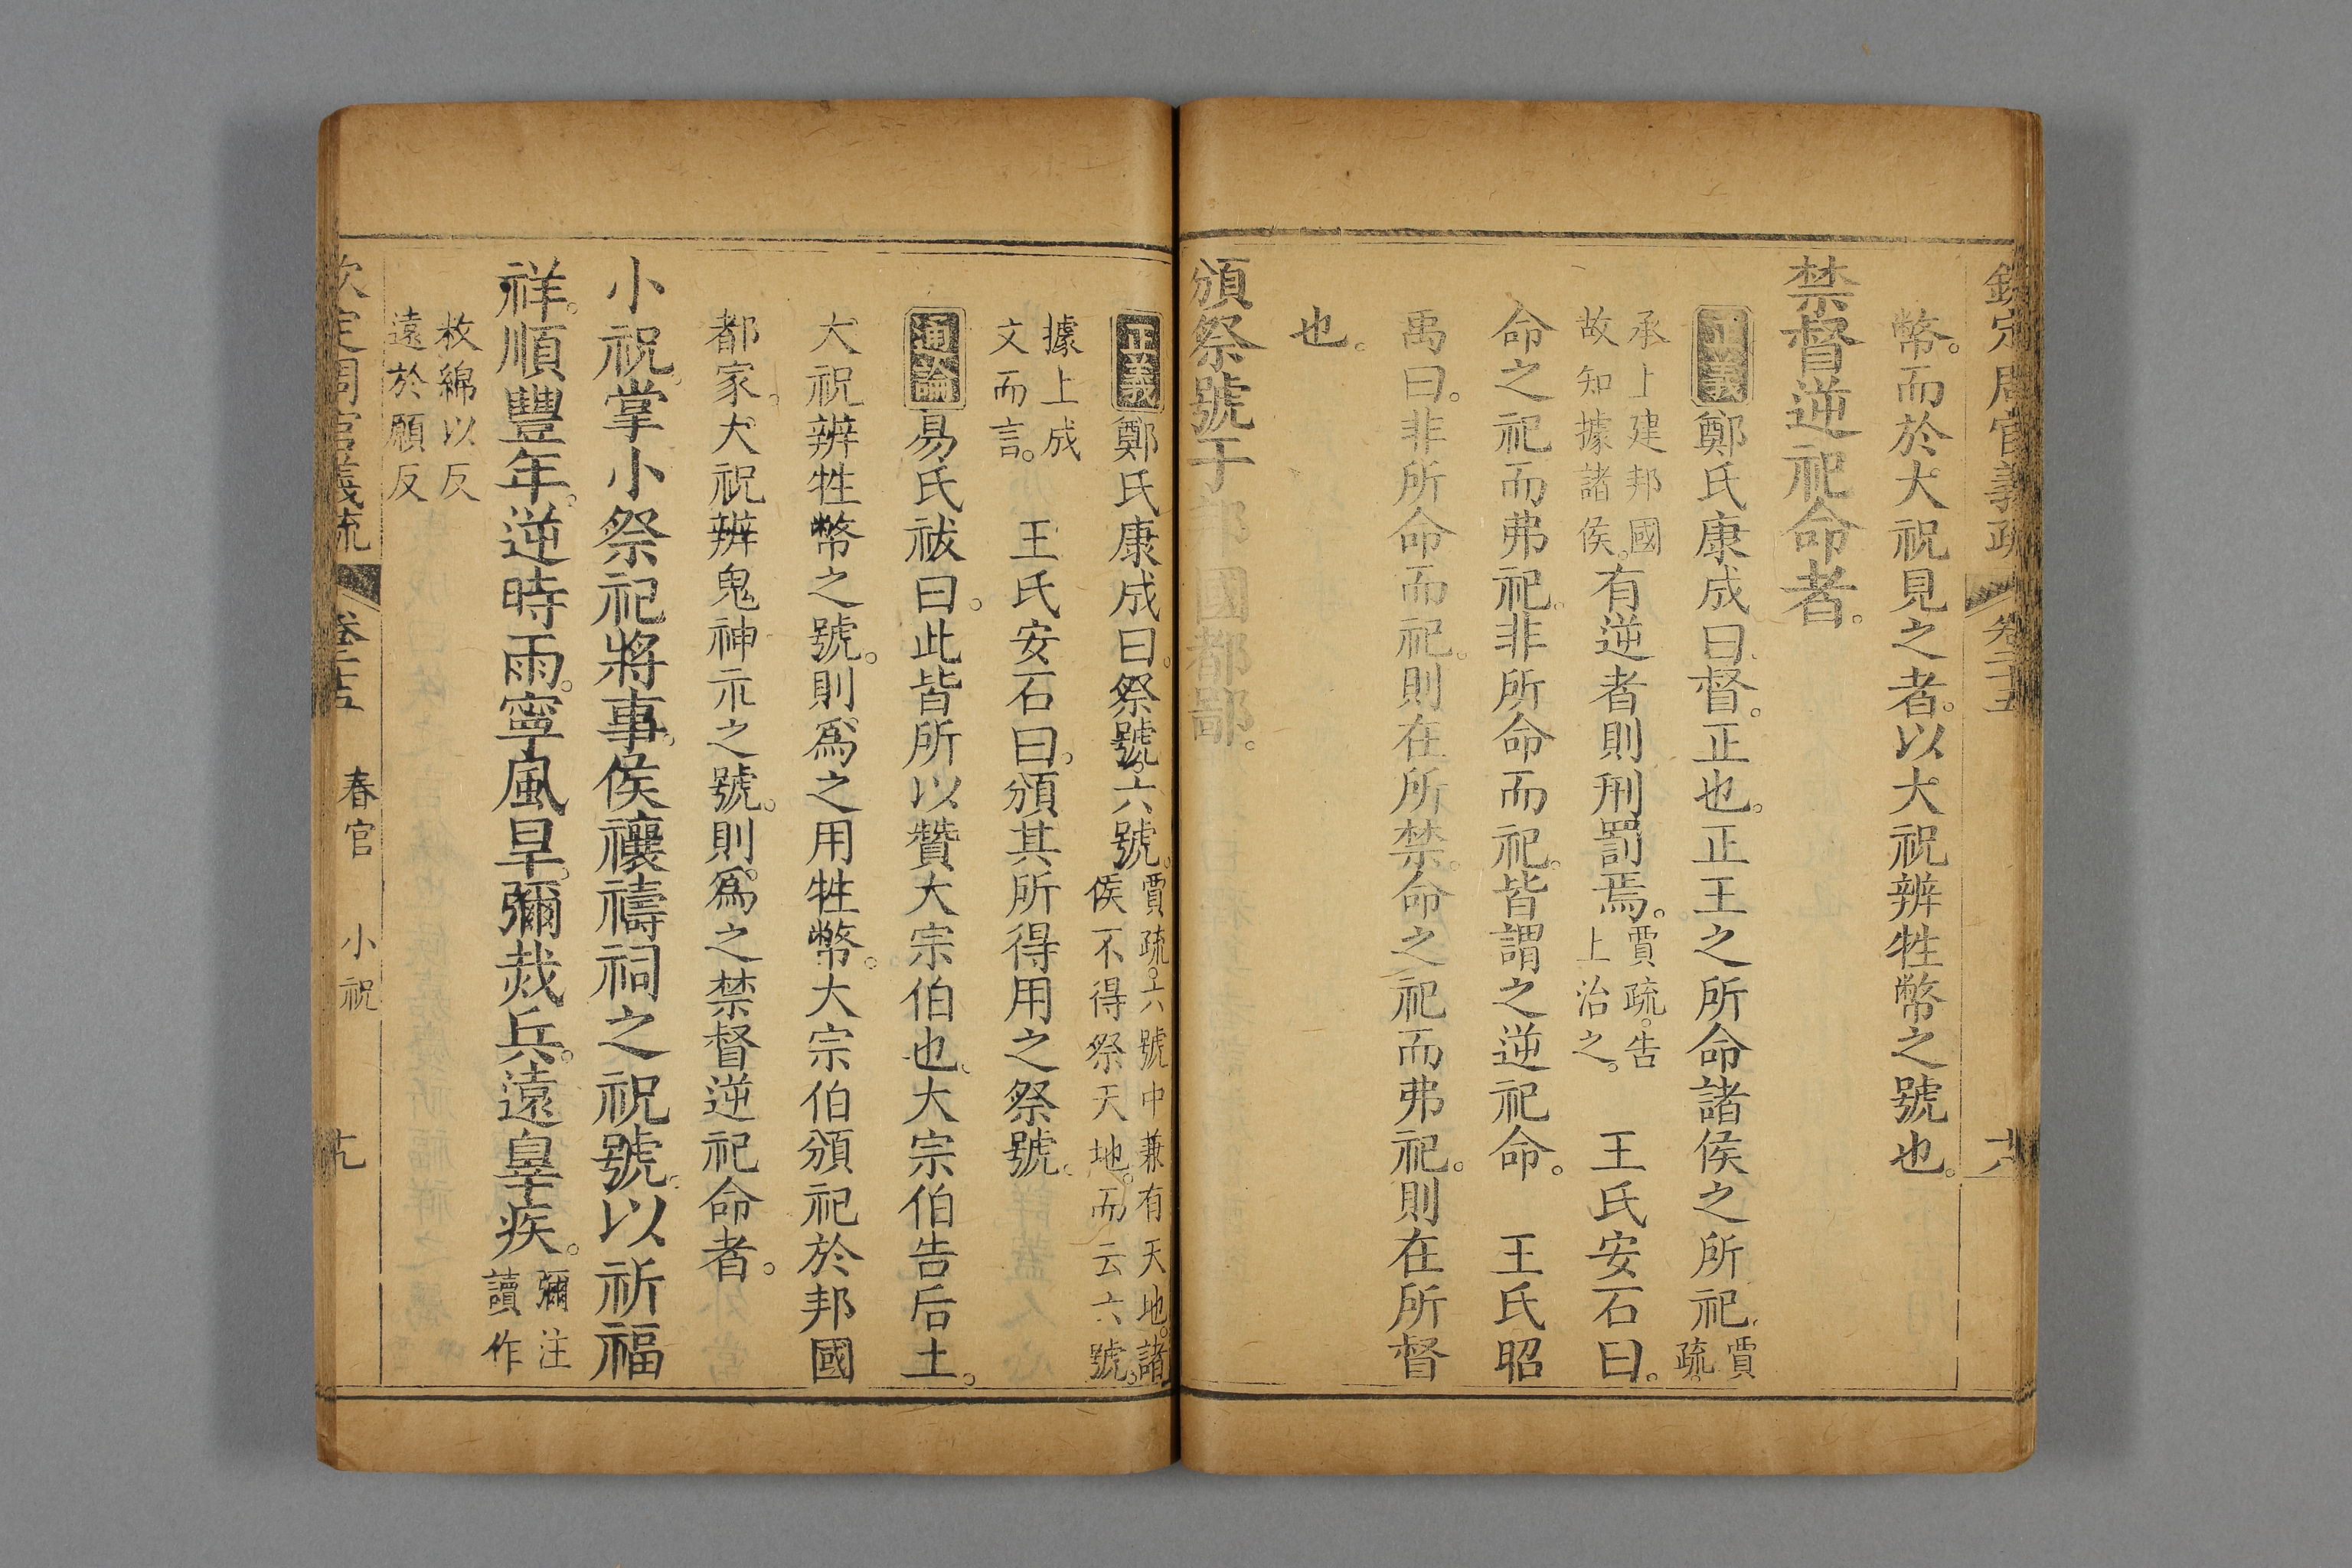 欽定周官義疏 卷二十五 十八
幣。而於大祝見之者。以大祝辨牲幣之號也。
禁督逆祀命者。
正義鄭氏康成曰。督。正也。正王之所命諸侯之所祀。賈疏。
承上建邦國
故知據諸侯。有逆者則刑罰焉。賈疏。告上治之。 王氏安石曰。
命之祀而弗祀。非所命而祀。皆謂之逆祀命。 王氏昭
禹曰。非所命而祀。則在所禁。命之祀而弗祀。則在所督
也。
頒祭號于邦國都鄙。
正義鄭氏康成曰。祭號。六號。賈疏。六號中兼有天地。諸
侯不得祭天地。而云六號。
據上成
文而言。 王氏安石曰。頒其所得用之祭號。
通論易氏祓曰。此皆所以贊大宗伯也。大宗伯告后土。
大祝辨牲幣之號。則爲之用牲幣。大宗伯頒祀於邦國
都家。大祝辨鬼神示之號。則爲之禁督逆祀命者。
小祝。掌小祭祀將事。侯禳禱祠之祝號。以祈福
祥。順豐年。逆時雨。寧風旱。彌烖兵。遠辠疾。彌注
讀作
敉綿以反
遠於願反
欽定周官義疏 卷二十五 春官 小祝 十九